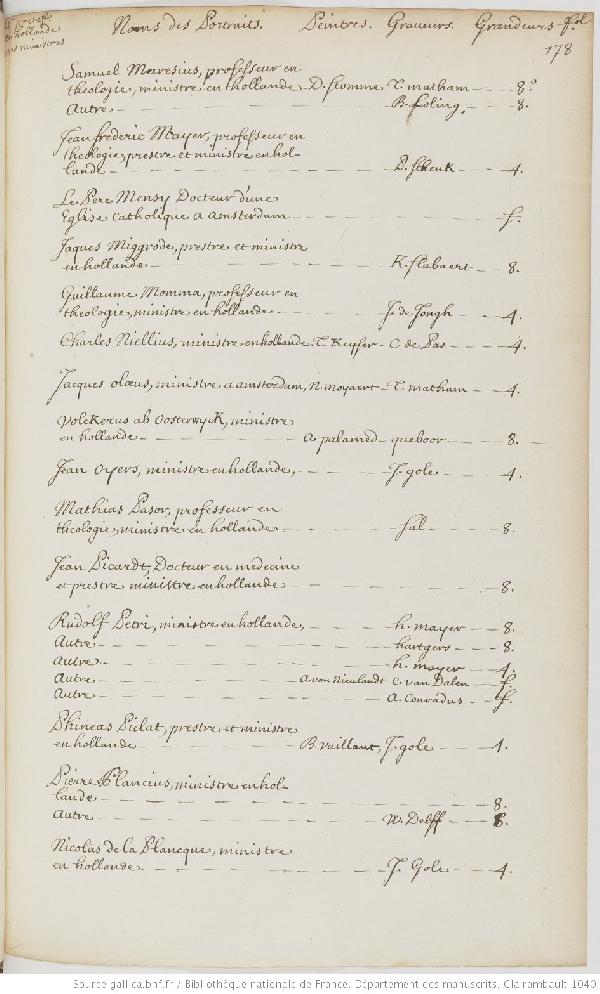 en hollande
Noms des Portraits. Peintres. Graveurs. Grandeurs fol.
ministres
178
Samuel Maresius, professeur en
theologie, ministre en hollande D. stomme T. matham 8.º
Autre B. foling. 8.
Jean frederic Mayer, professeur en
theologie, prestre et ministre en hol-
lande P. schenk 4.
Le Pere Mensy Docteur d'une
Eglise catholique a amsterdam f.
Jaques Miggrode, prestre et ministre
en hollande K. slabaert 8.
Guillaume Momma, professeur en
theologie, ministre en hollande J. de Jongh 4.
Charles Niellius, ministre en hollande T. Keyser C. de Pas 4.
Jacques olaeus, ministre a amsterdam, N. moyaert T. matham 4.
Volckerus ab Oosterwyck, ministre
en hollande A palamed queboor 8.
Jean Oyers, ministre en hollande, J. gole 4.
Mathias Pasor, professeur en
theologie, ministre en hollande sal 8.
Jean Picardt, Docteur en medecine
et prestre ministre en hollande 8.
Rudolf Petri, ministre en hollande, h. mayer 8.
Autre hartgers 8.
Autre h. mayer 4.
Autre A. van Nieulandt C. van Dalen f.
Autre A. Conradus f.
Phineas Pielat, prestre et ministre
en hollande B. vaillant, J. gole 4.
Pierre Plancius, ministre en hol-
lande 8.
Autre W. Delff 8.
Nicolas de la Plancque, ministre
en hollande. J. Gole 4.
Source gallica.bnf.fr / Bibliothèque nationale de France. Département des manuscrits. Clairambault 1040